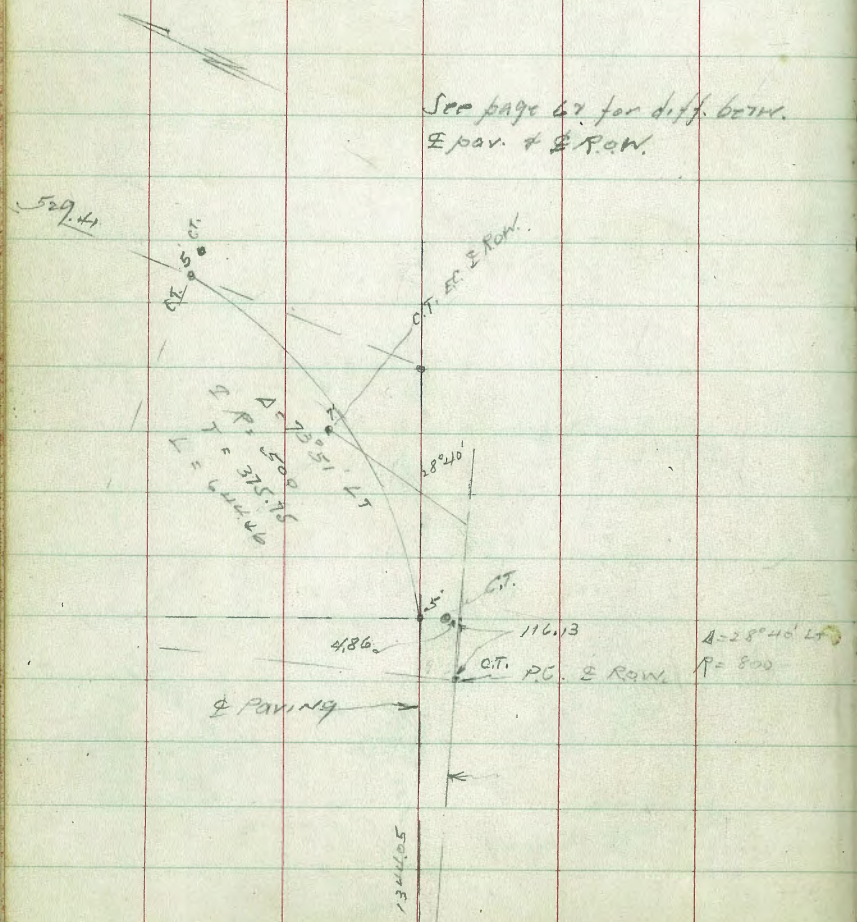 See page 67 for diff. betw.
℄ pav. & ℄ R.O.W.
529.41
C.T.
5'
C.T.
C.T. E.C. ℄ ROW.
Δ = 73°51' LT
℄ R = 500
T = 375.75
L = 644.46
28°40'
C.T.
5'
116.13
4.86
Δ=28°40' LT
R= 800
C.T. P.C. ℄ R.O.W.
℄ PAVING
1344.05